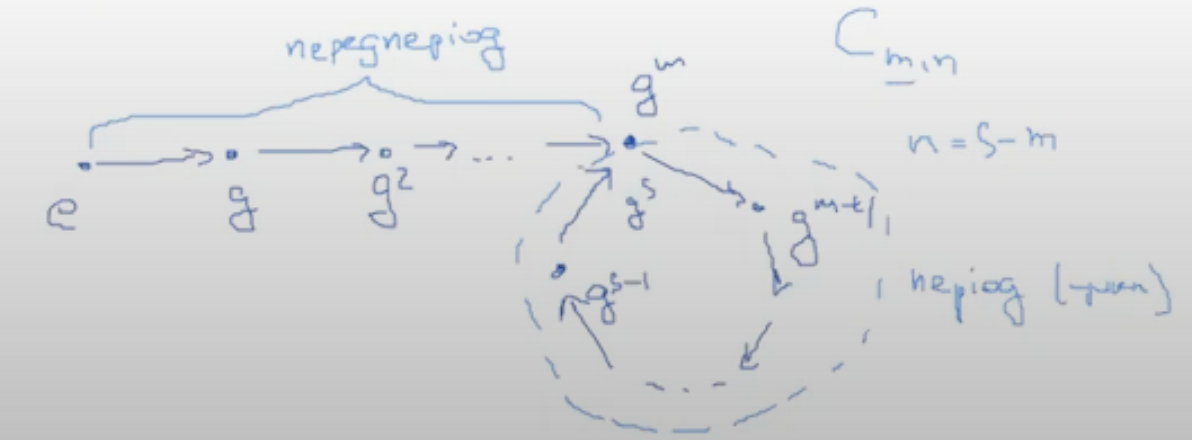 передперіод
C_{m,n}
g^m
n = s - m
e
g
g^2
...
g^s
g^{m+1}
g^{s-1}
період (-цикл)
...